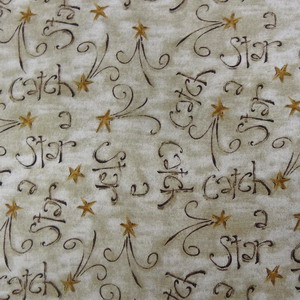 a
Star
catch
a
Star
catch
a
Star
catch
a
Star
catch
a
Star
a
Star
catch